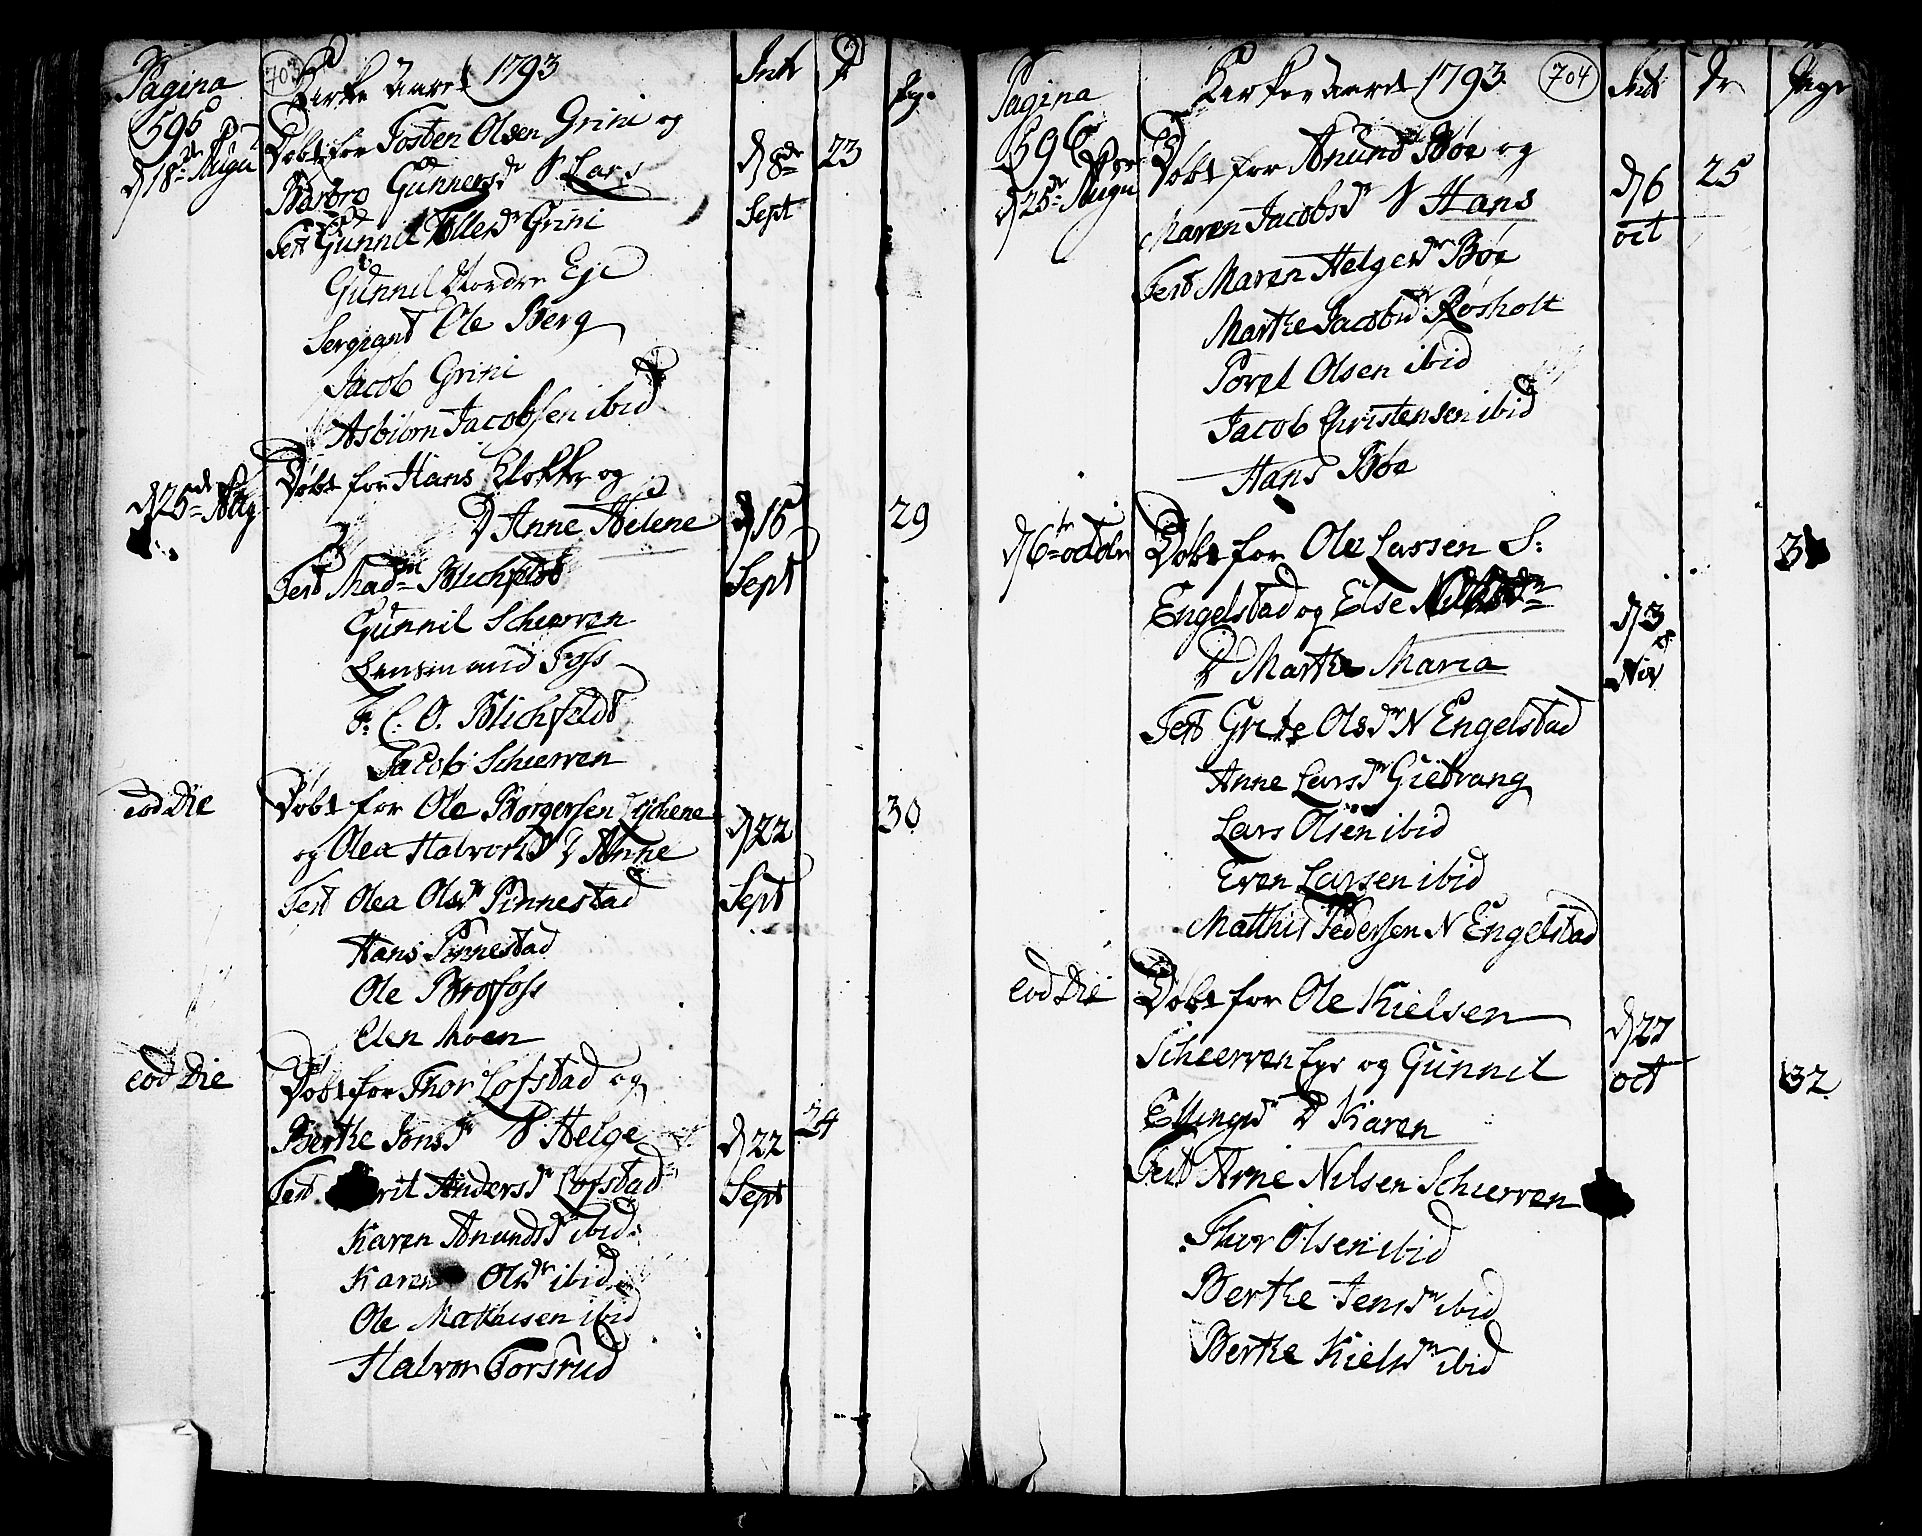 Pagina 703 Kirke Aaret 1793 Intr
595
d 18de Augu Døbt for Tosten Olsen Grini og d 8de 23
Barbro Gunnersdr S Lars Sept
Test Gunnil Grini
Gunnil Nordre Eje
Sergiant Ole Berg
Jacob Grini
Asbiørn Jacobsen ibid
d 25de Aug Døbt for Hans Klokker og
D Anne Helene d 15 29
Test Madm Blichfeldt Sept
Gunnil Scheerven
Lensmand Foss
F. C. O. Blichfeldt
Jacob Schierven
eod Die Døbt for Ole Borgersen 30
og Olea Halvorsd D Anne d 22
Test Olea Olsdr Pinnestad Sept
Hans Pinnestad
Ole Brofoss
Elen Moen
eod Die Døbt for Thor Lofstad og
Berthe Jonsdr S Helge d 22 24
Test Andersdr Lofstad Sept
Karen Anundsdr ibid
Karen Olsdr ibid
Ole Mathisen ibid
Halvor Forsrud
Pagina Kirke Aaret 1793 704 Int Dr Pige
596
d 25de Augu Døbt for Anund Bøe og d 6 25
Maren Jacobsdr S Hans oct
Test Maren Helgesdr Bøe
Marthe Jacobsdr Røsholt
Povel Olsen ibid
Jacob Christensen ibid
Hans Bøe
d 6te octobr Døbt for Ole Larsen S:
Engelstad og Else d 3
D Marthe Maria Nov
Test Grete Olsdr N Engelstad
Anne Larsdr Gietvang
Lars Olsen ibid
Even Larsen ibid
Matthis Pedersen N Engelstad
eod Die Døbt for Ole Kielsen d 27
Scheerven Eye og Gunnil oct 32
Ellingsdr D Karen
Test Arne Nilsen Schierven
Thor Olsen ibid
Berthe Jensdr ibid
Berthe Kielsdr ibid